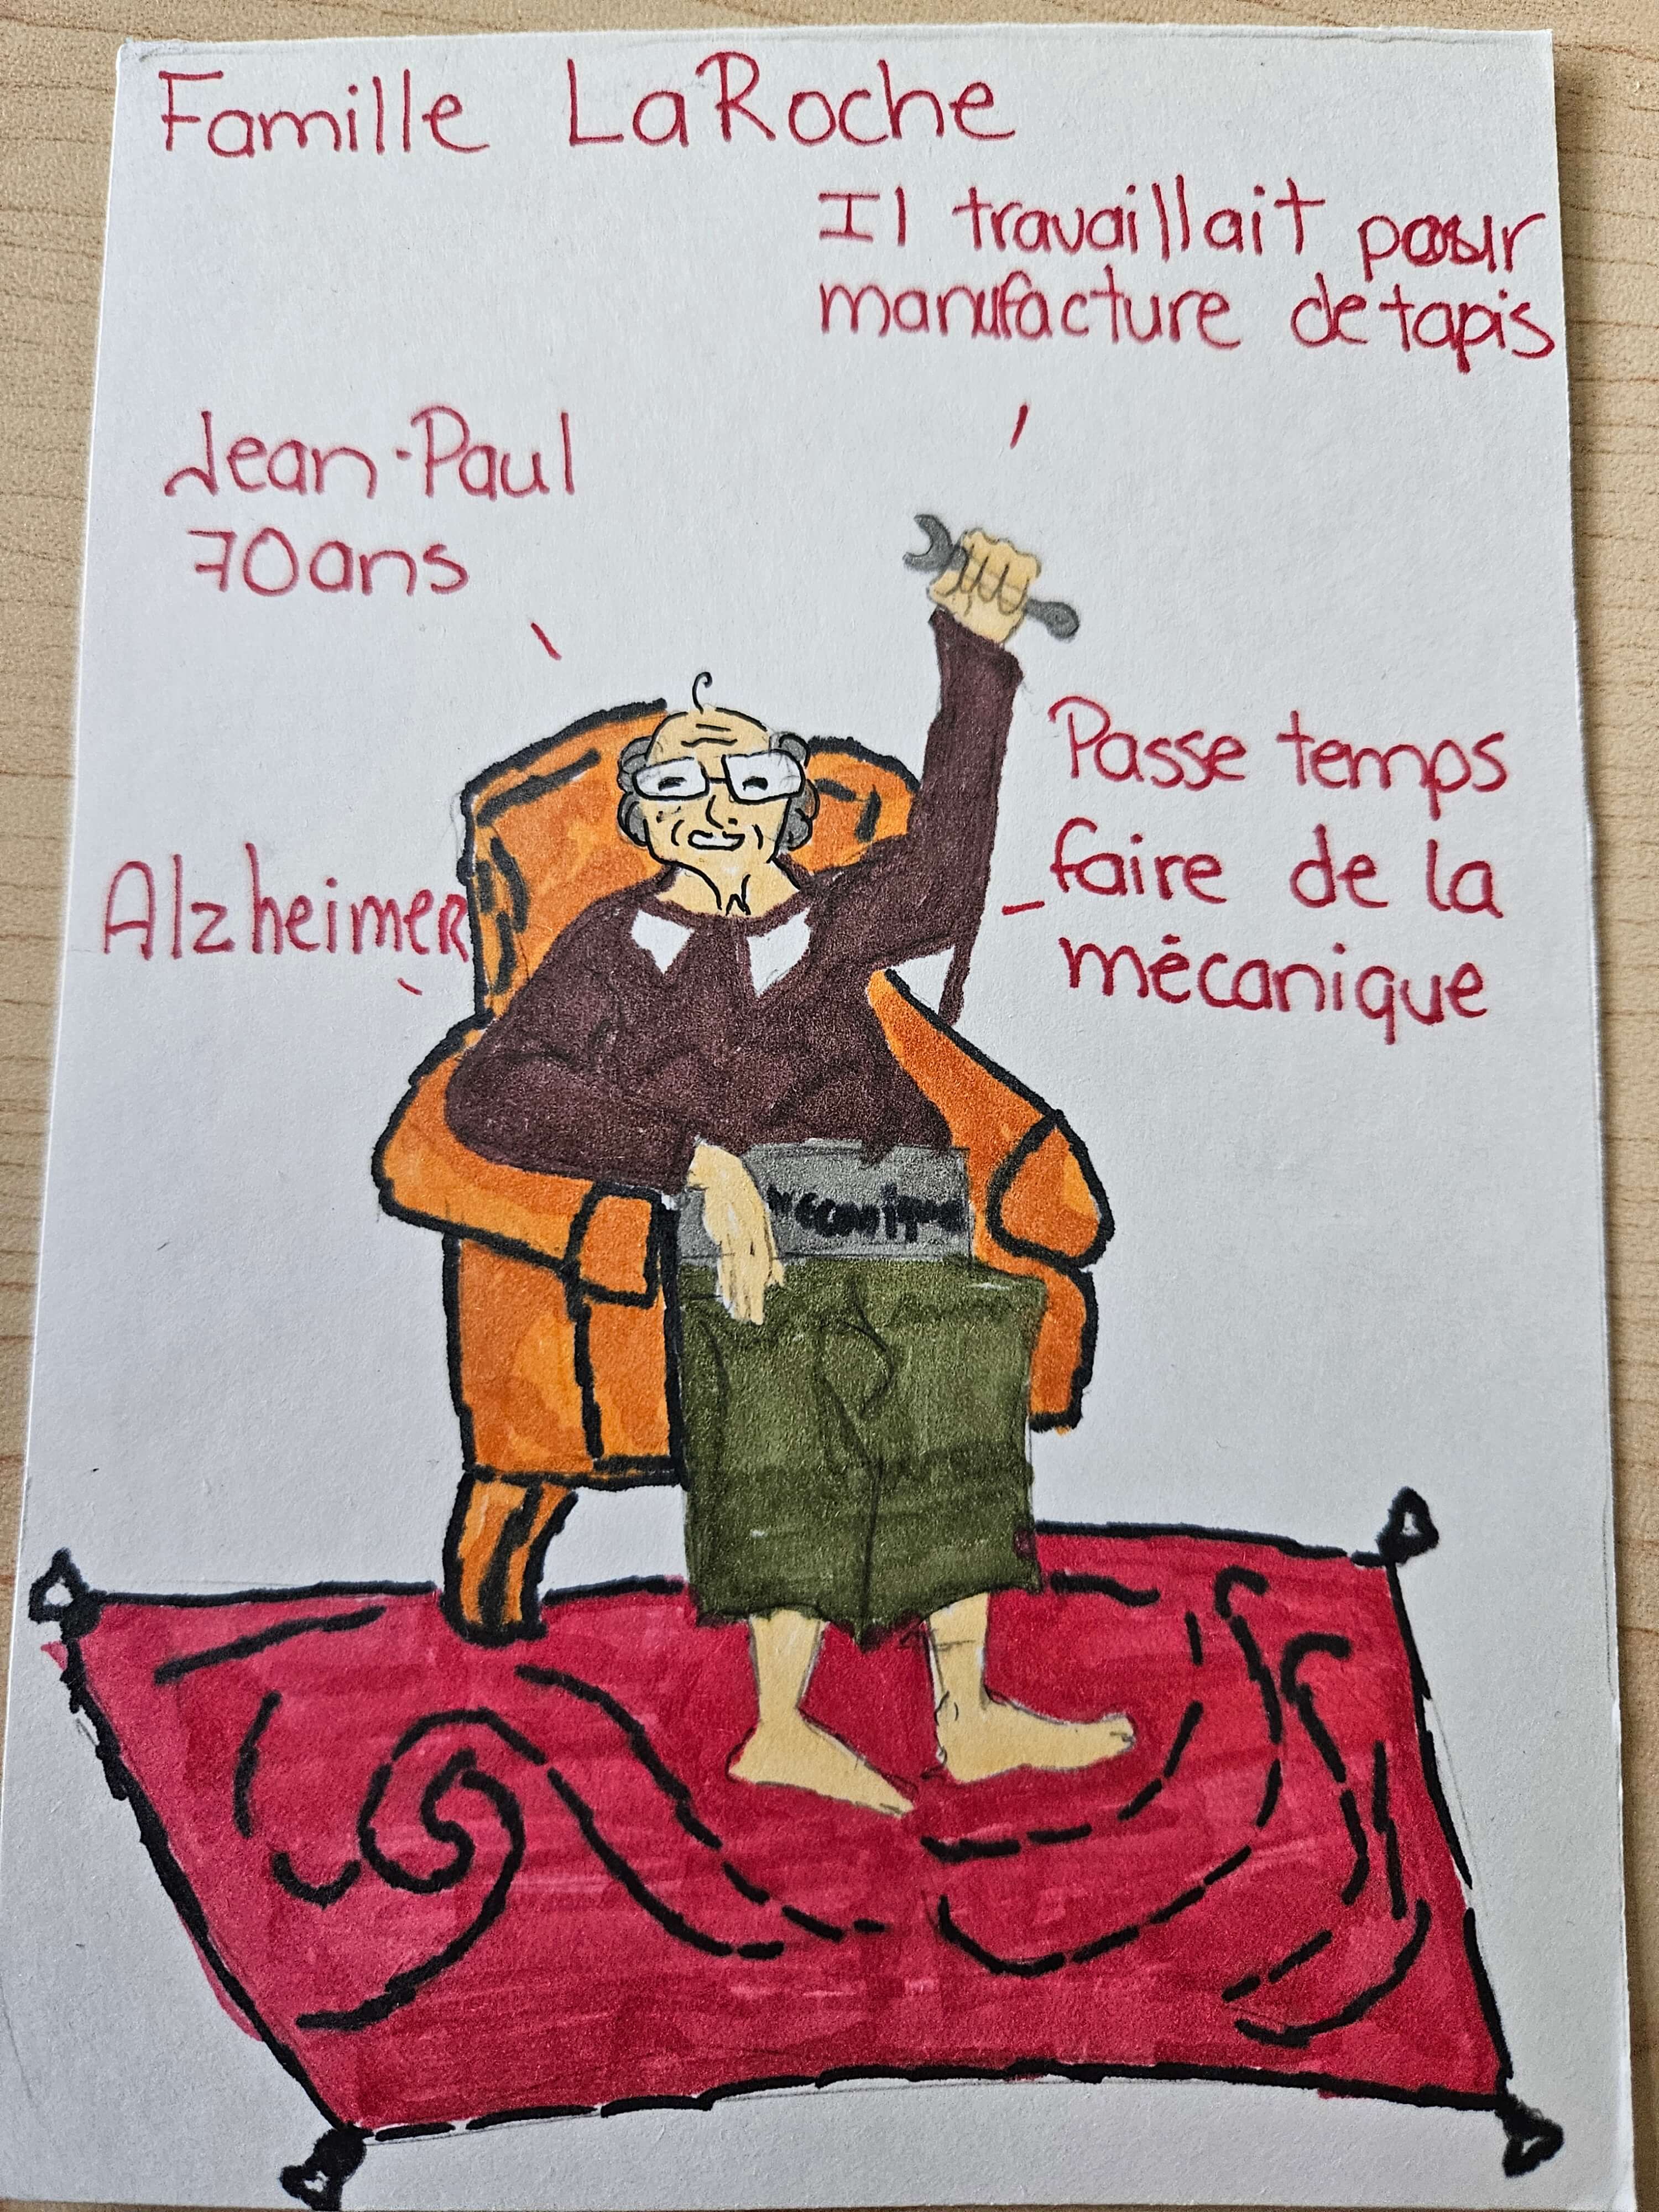 Famille LaRoche
Il travaillait pour
manufacture de tapis
Jean-Paul
70 ans
Passe temps
faire de la
mécanique
Alzheimer